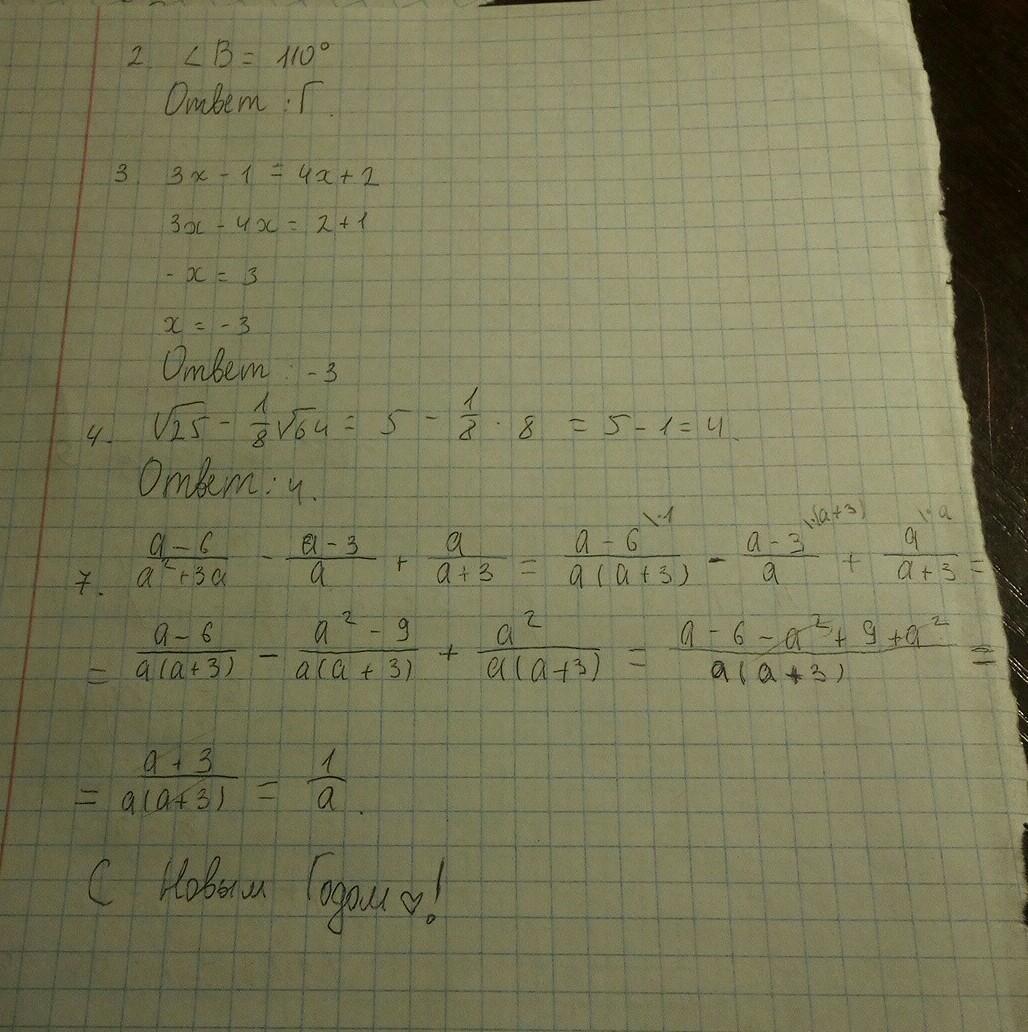 2. ∠B = 110°
Ответ: Г.
3. 3x - 1 = 4x + 2
3x - 4x = 2 + 1
- x = 3
x = -3
Ответ: -3
4. √25 - 1/8 √64 = 5 - 1/8 · 8 = 5 - 1 = 4.
Ответ: 4.
7. (a - 6)/(a² + 3a) - (a - 3)/a + a/(a + 3) = (a - 6)/(a(a + 3)) \·1 - (a - 3)/a \·(a + 3) + a/(a + 3) \·a =
= (a - 6)/(a(a + 3)) - (a² - 9)/(a(a + 3)) + a²/(a(a + 3)) = (a - 6 - a² + 9 + a²)/(a(a + 3)) =
= (a + 3)/(a(a + 3)) = 1/a.
С Новым Годом ♡!